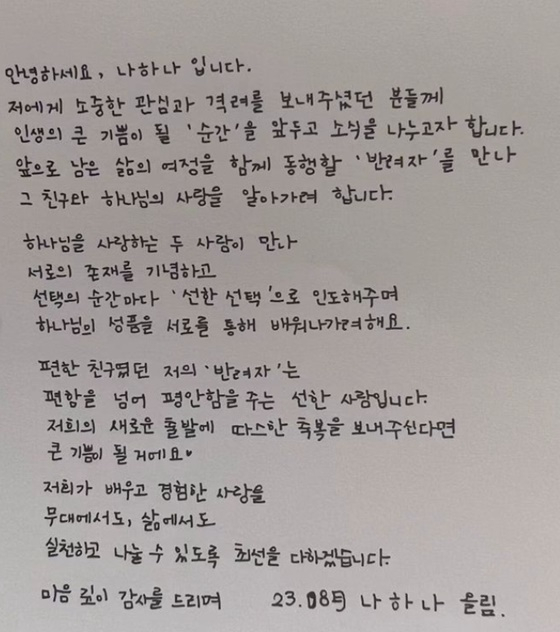 안녕하세요, 나하나 입니다.
저에게 소중한 관심과 격려를 보내주셨던 분들께
인생의 큰 기쁨이 될 '순간'을 앞두고 소식을 나누고자 합니다.
앞으로 남은 삶의 여정을 함께 동행할 '반려자'를 만나
그 친구와 하나님의 사랑을 알아가려 합니다.
하나님을 사랑하는 두 사람이 만나
서로의 존재를 기념하고
선택의 순간마다 '선한 선택'으로 인도해주며
하나님의 성품을 서로를 통해 배워나가려해요.
편한 친구였던 저의 '반려자'는
편함을 넘어 평안함을 주는 선한 사람입니다.
저희의 새로운 출발에 따스한 축복을 보내주신다면
큰 기쁨이 될 거에요♥
저희가 배우고 경험한 사랑을
무대에서도, 삶에서도
실천하고 나눌 수 있도록 최선을 다하겠습니다.
마음 깊이 감사를 드리며 23.08月 나하나 올림.